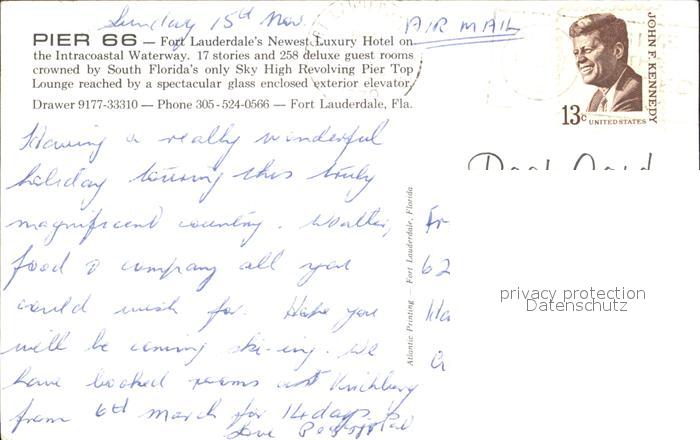 Sunday 15th Nov.
AIR MAIL
PIER 66 — Fort Lauderdale's Newest Luxury Hotel on
the Intracoastal Waterway. 17 stories and 258 deluxe guest rooms
crowned by South Florida's only Sky High Revolving Pier Top
Lounge reached by a spectacular glass enclosed exterior elevator.
Drawer 9177-33310 — Phone 305-524-0566 — Fort Lauderdale, Fla.
JOHN F. KENNEDY
13c UNITED STATES
Post Card
Having a really wonderful
holiday touring this truly
magnificent country. Weather,
food & company all you
could wish for. Hope you
will be coming ski-ing. We
have booked rooms at Kirchberg
from 6th March for 14 days
Love
Atlantic Printing — Fort Lauderdale, Florida
Fr
62
privacy protection
Datenschutz